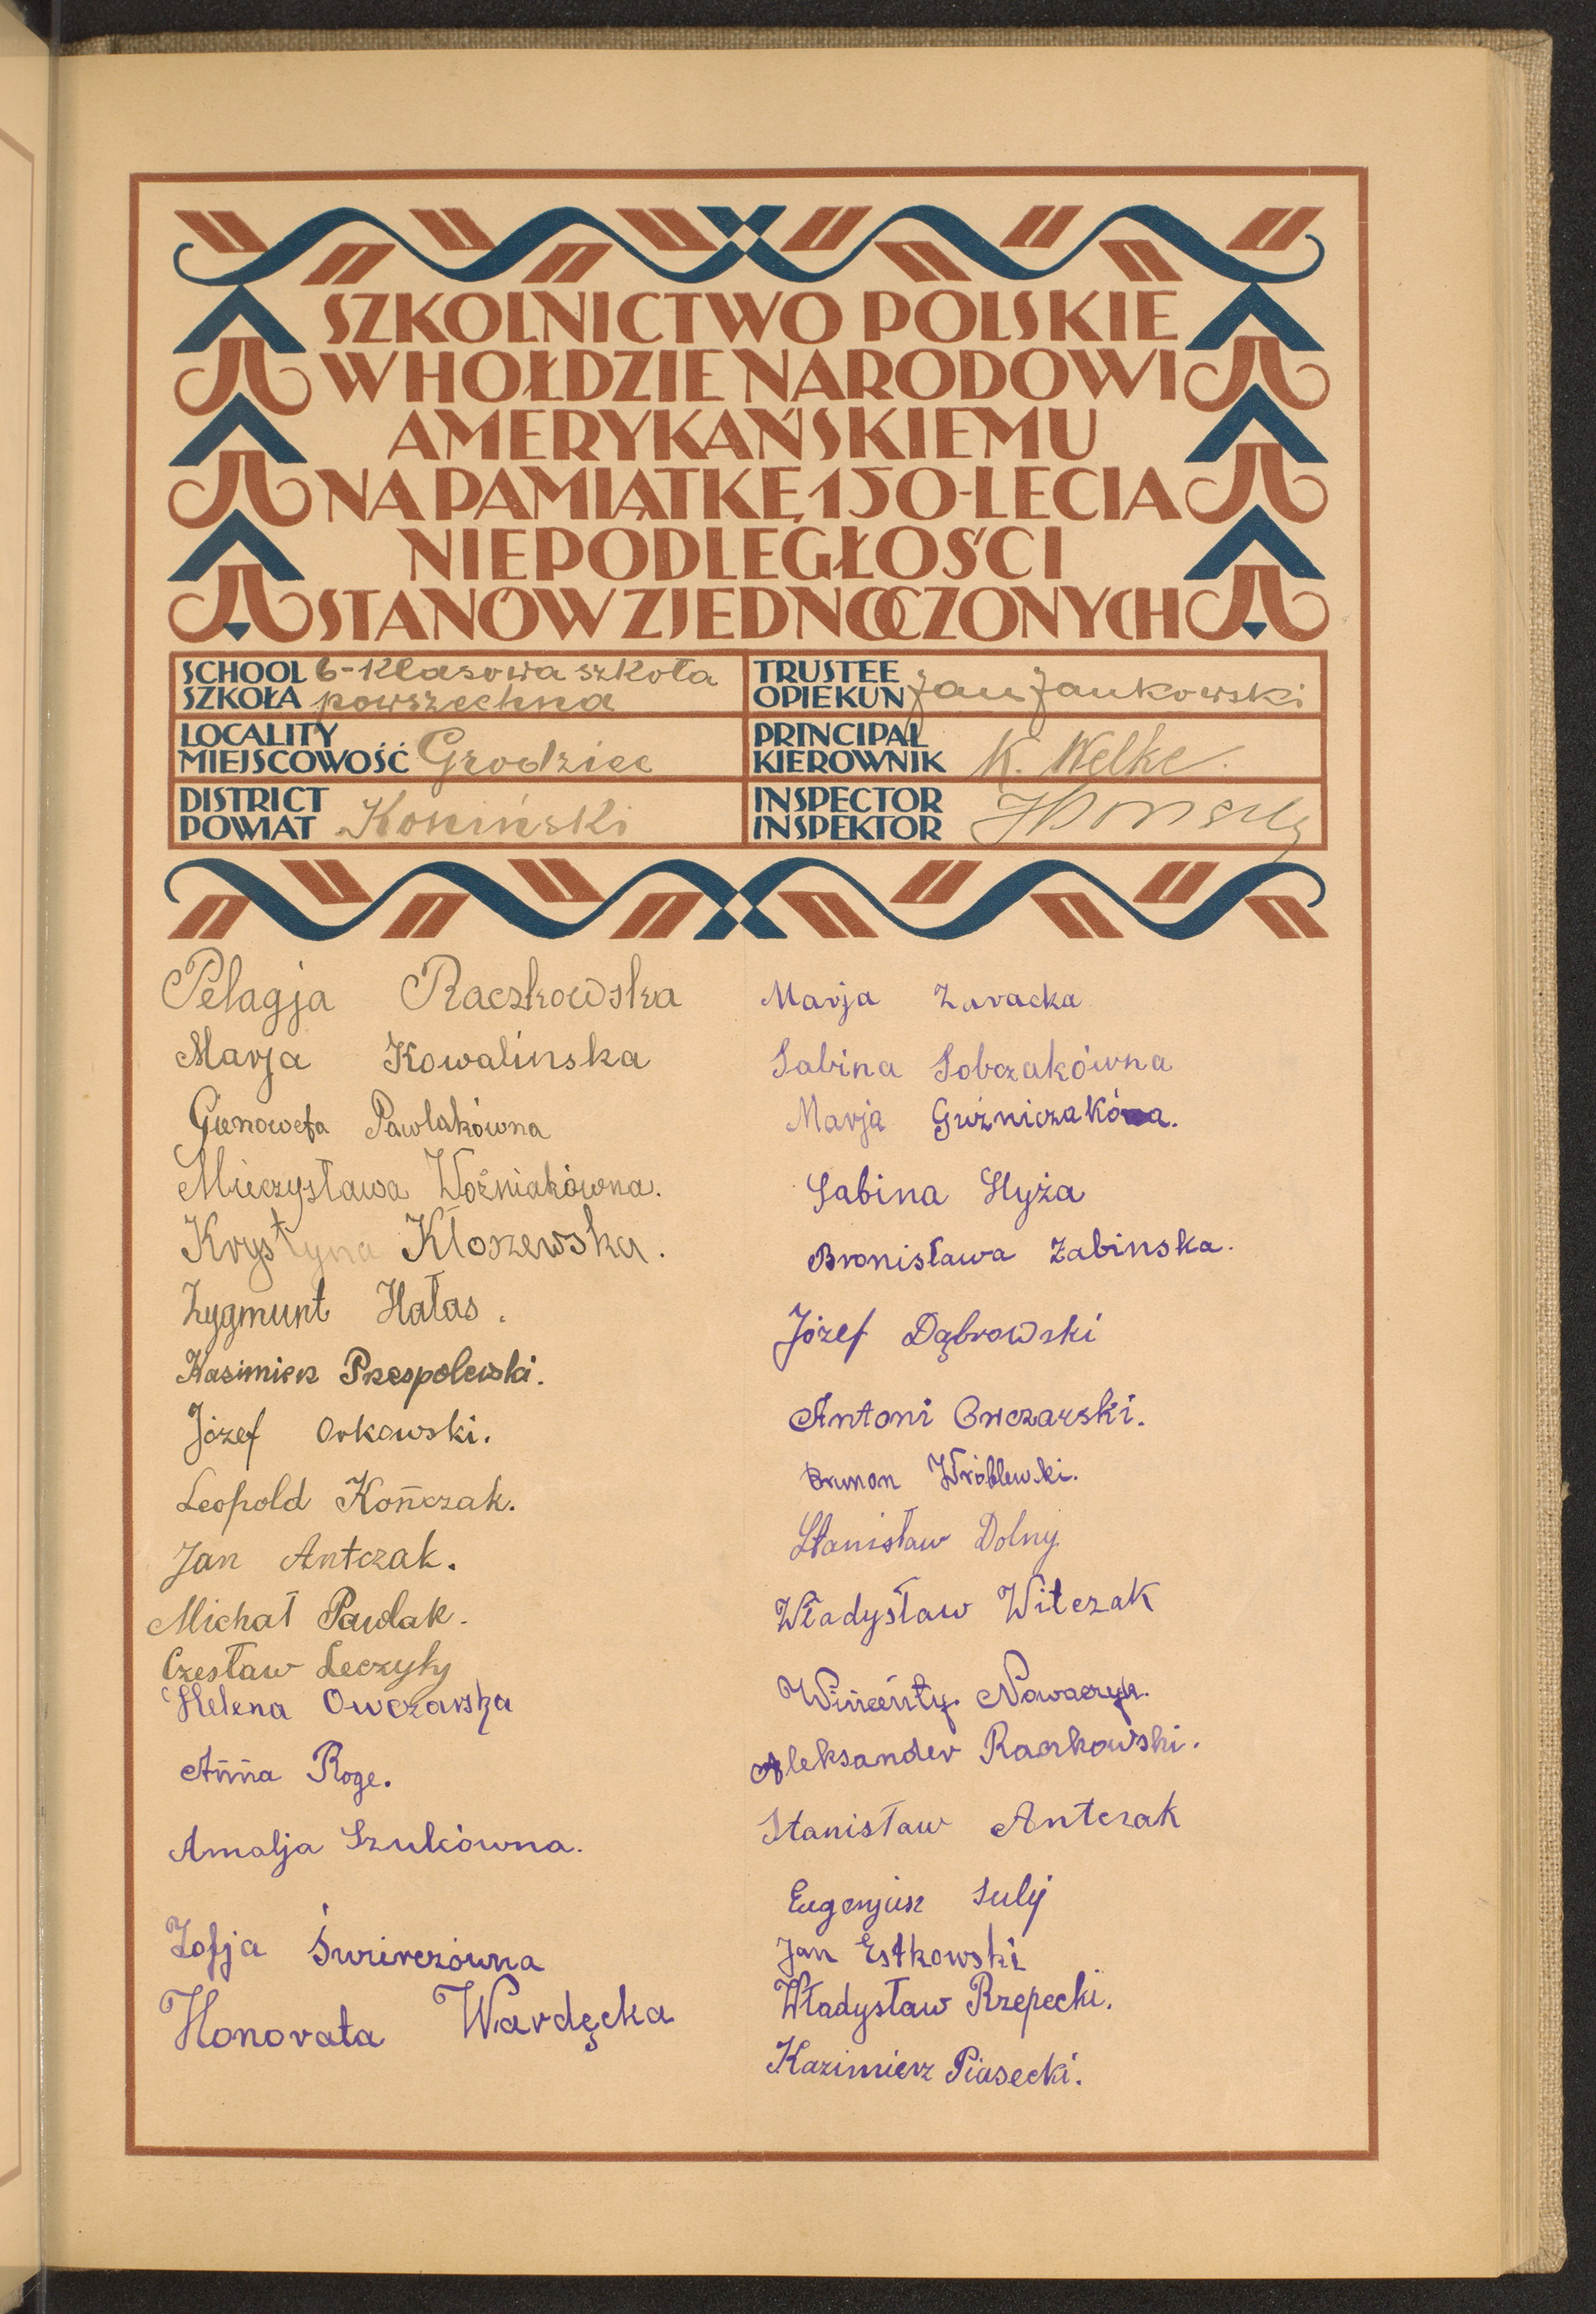 SZKOLNICTWO POLSKIE
W HOŁDZIE NARODOWI
AMERYKAŃSKIEMU
NA PAMIĄTKĘ 150-LECIA
NIEPODLEGŁOŚCI
STANÓW ZJEDNOCZONYCH
SCHOOL 6-klasowa szkoła
SZKOŁA powszechna
TRUSTEE
OPIEKUN Jan Jankowski
LOCALITY
MIEJSCOWOŚĆ Grodziec
PRINCIPAL
KIEROWNIK K. Welke.
DISTRICT
POWIAT Koniński
INSPECTOR
INSPEKTOR
Pelagja Raczkowska
Marja Kowalinska
Gienowefa Pawlakówna
Mieczysława Woźniakówna.
Krystyna Kłoszewska.
Zygmunt Hałas.
Kasimierz Przespolewski.
Józef Orkowski.
Leopold Kończak.
Jan Antczak.
Michał Pawlak.
Czesław Leczyky
Helena Owczarska
Anna Roge.
Amalja Szulcówna.
Zofja Świrczówna
Honorata Wardęcka
Marja Zaracka
Sabina Sobczakówna
Marja
Sabina Hyża
Bronisława Zabinska.
Józef Dąbrowski
Antoni Owczarski.
Brunon Wróblewski.
Stanisław Dolny
Władysław Witczak
Wincenty Nowaczyk.
Aleksander Raczkowski.
Stanisław Antczak
Eugenjusz Sulij
Jan Estkowski
Władysław Rzepecki.
Kazimierz Piasecki.